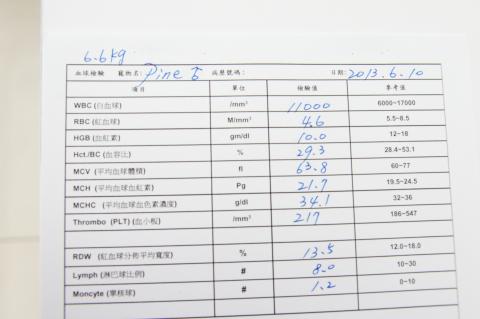 6.6kg
血球檢驗 寵物名: Pine 病歷號碼: 日期: 2013.6.10
項目 單位 檢驗值 參考值
WBC (白血球) /mm³ 11000 6000~17000
RBC (紅血球) M/mm³ 4.6 5.5~8.5
HGB (血紅素) gm/dl 10.0 12~18
Hct./BC (血容比) % 29.3 28.4~53.1
MCV (平均血球體積) fl 63.8 60~77
MCH (平均血球血紅素) Pg 21.7 19.5~24.5
MCHC (平均血球血色素濃度) g/dl 34.1 32~36
Thrombo (PLT) (血小板) /mm³ 217 186~547
RDW (紅血球分佈平均寬度) % 13.5 12.0~18.0
Lymph (淋巴球比例) # 8.0 10~30
Moncyte (單核球) # 1.2 0~10